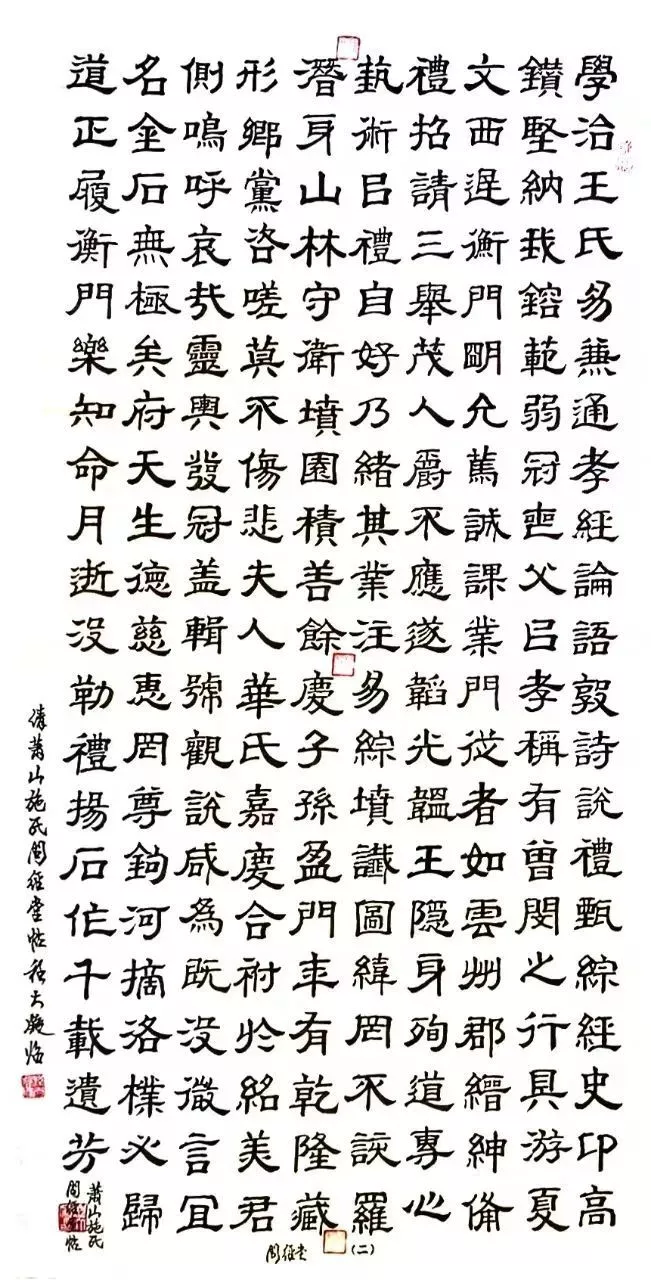 學洽王氏易兼通孝經論語敦詩說禮甄綜經史印高
鑽堅納我鎔範弱冠喪父㠯孝稱有曾閔之行具游夏
文西遲衡門朙允篤誠課業門從者如雲州郡縉紳備
禮招請三舉茂人爵不應遂韜光韞王隱身殉道專心
埶術㠯禮自好乃緒其業注易綜墳讖圖緯罔不詼羅
潛身山林守衛墳園積善餘慶子孫盈門年有乾隆藏
形鄉黨咨嗟莫不傷悲夫人華氏嘉慶合祔於銘美君
側鳴呼哀哉靈輿發冠盖輯號觀說咸為既沒微言宜
名金石無極矣府天生德慈惠罔尊鉤河摘洛樸必歸
道正履衡門樂知命月逝沒勒禮揚石作千載遺芳
蕭山施氏經堂帖臨
蕭山施氏
經堂帖
經堂(二)